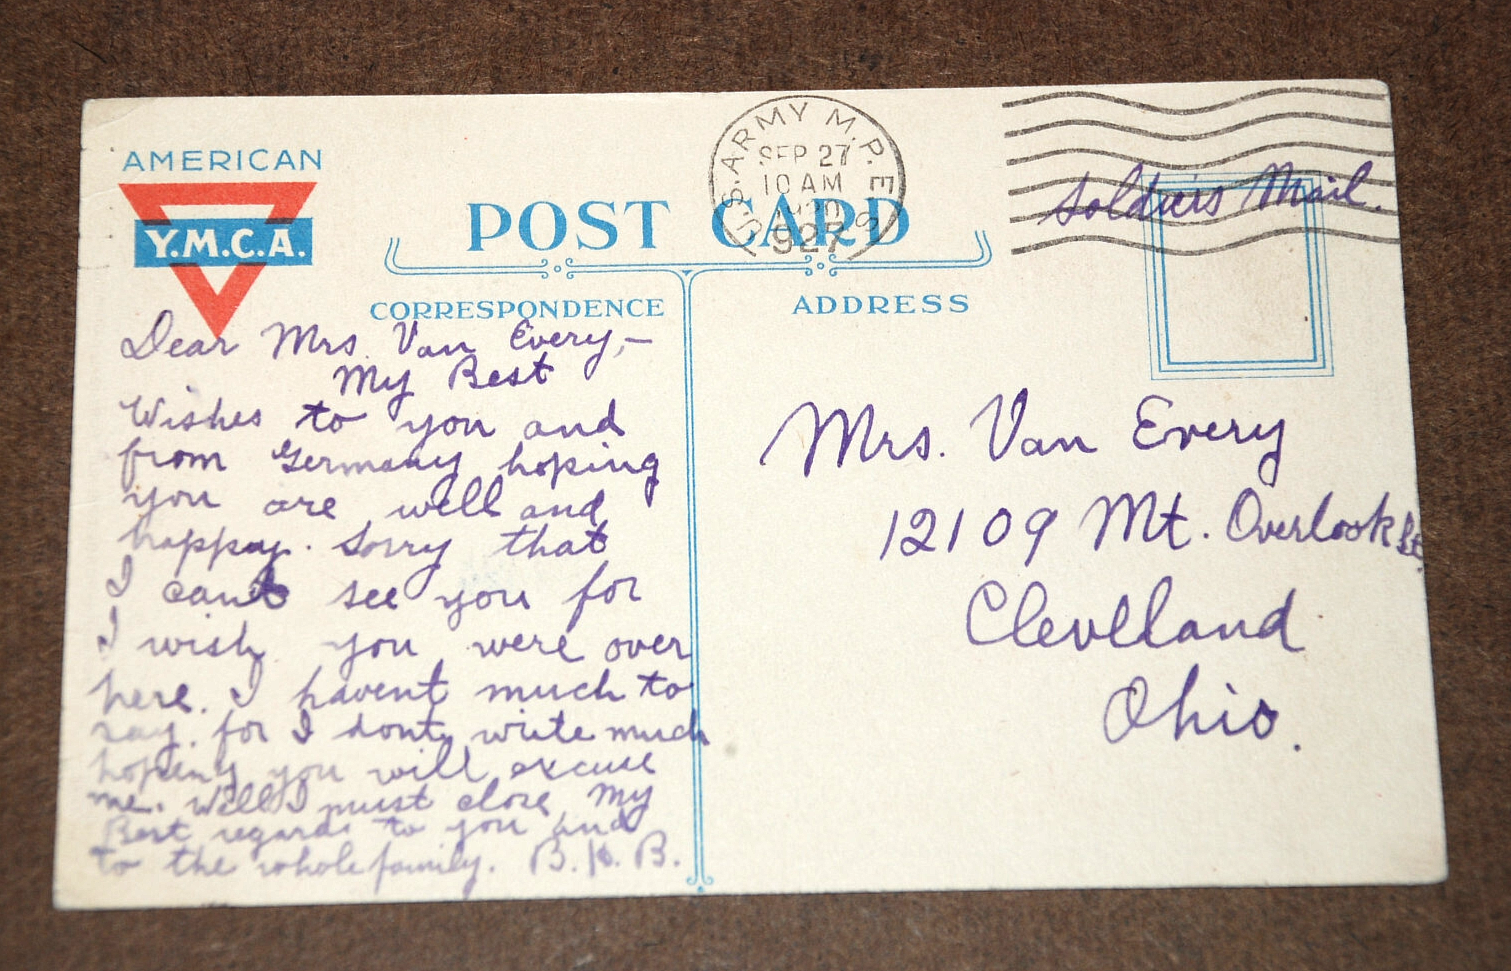 AMERICAN
Y.M.C.A.
POST CARD
U.S. ARMY M.P.E.S.
SEP 27
10 AM
927
Soldiers Mail.
CORRESPONDENCE
ADDRESS
Dear Mrs. Van Every,—
My Best
Wishes to you and
from Germany hoping
you are well and
happy. Sorry that
I cant see you for
I wish you were over
here. I havent much to
say. for I dont write much
hoping you will excuse
me. Well I must close My
Best regards to you and
to the whole family. B. B.
Mrs. Van Every
12109 Mt. Overlook St.
Clevelland
Ohio.